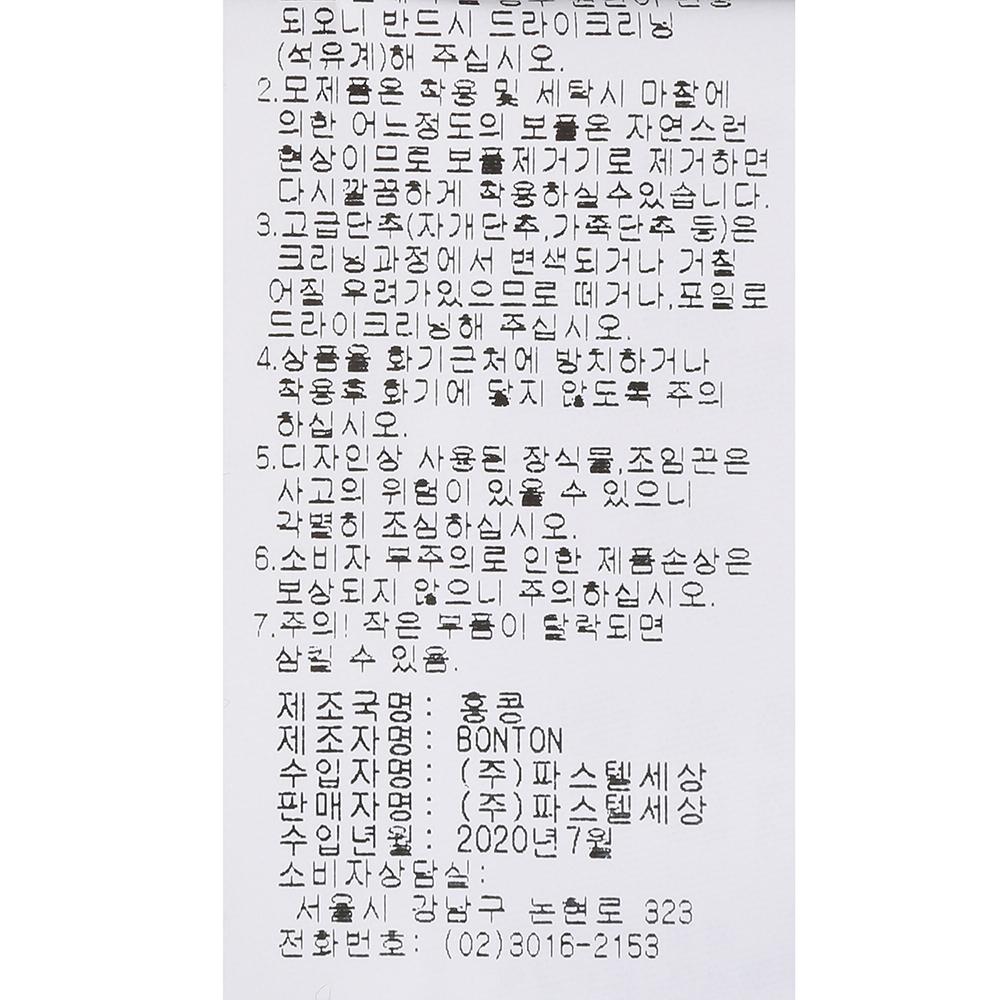 되오니 반드시 드라이크리닝
(석유계)해 주십시오.
2.모제품은 착용 및 세탁시 마찰에
의한 어느정도의 보풀은 자연스런
현상이므로 보풀제거기로 제거하면
다시깔끔하게 착용하실수있습니다.
3.고급단추(자개단추,가죽단추 등)은
크리닝과정에서 변색되거나 거칠
어질 우려가있으므로 떼거나,포일로
드라이크리닝해 주십시오.
4.상품을 화기근처에 방치하거나
착용후 화기에 닿지 않도록 주의
하십시오.
5.디자인상 사용된 장식물,조임끈은
사고의 위험이 있을 수 있으니
각별히 조심하십시오.
6.소비자 부주의로 인한 제품손상은
보상되지 않으니 주의하십시오.
7.주의! 작은 부품이 탈락되면
삼킬 수 있음.
제조국명: 홍콩
제조자명: BONTON
수입자명: (주)파스텔세상
판매자명: (주)파스텔세상
수입년월: 2020년7월
소비자상담실:
서울시 강남구 논현로 323
전화번호: (02)3016-2153